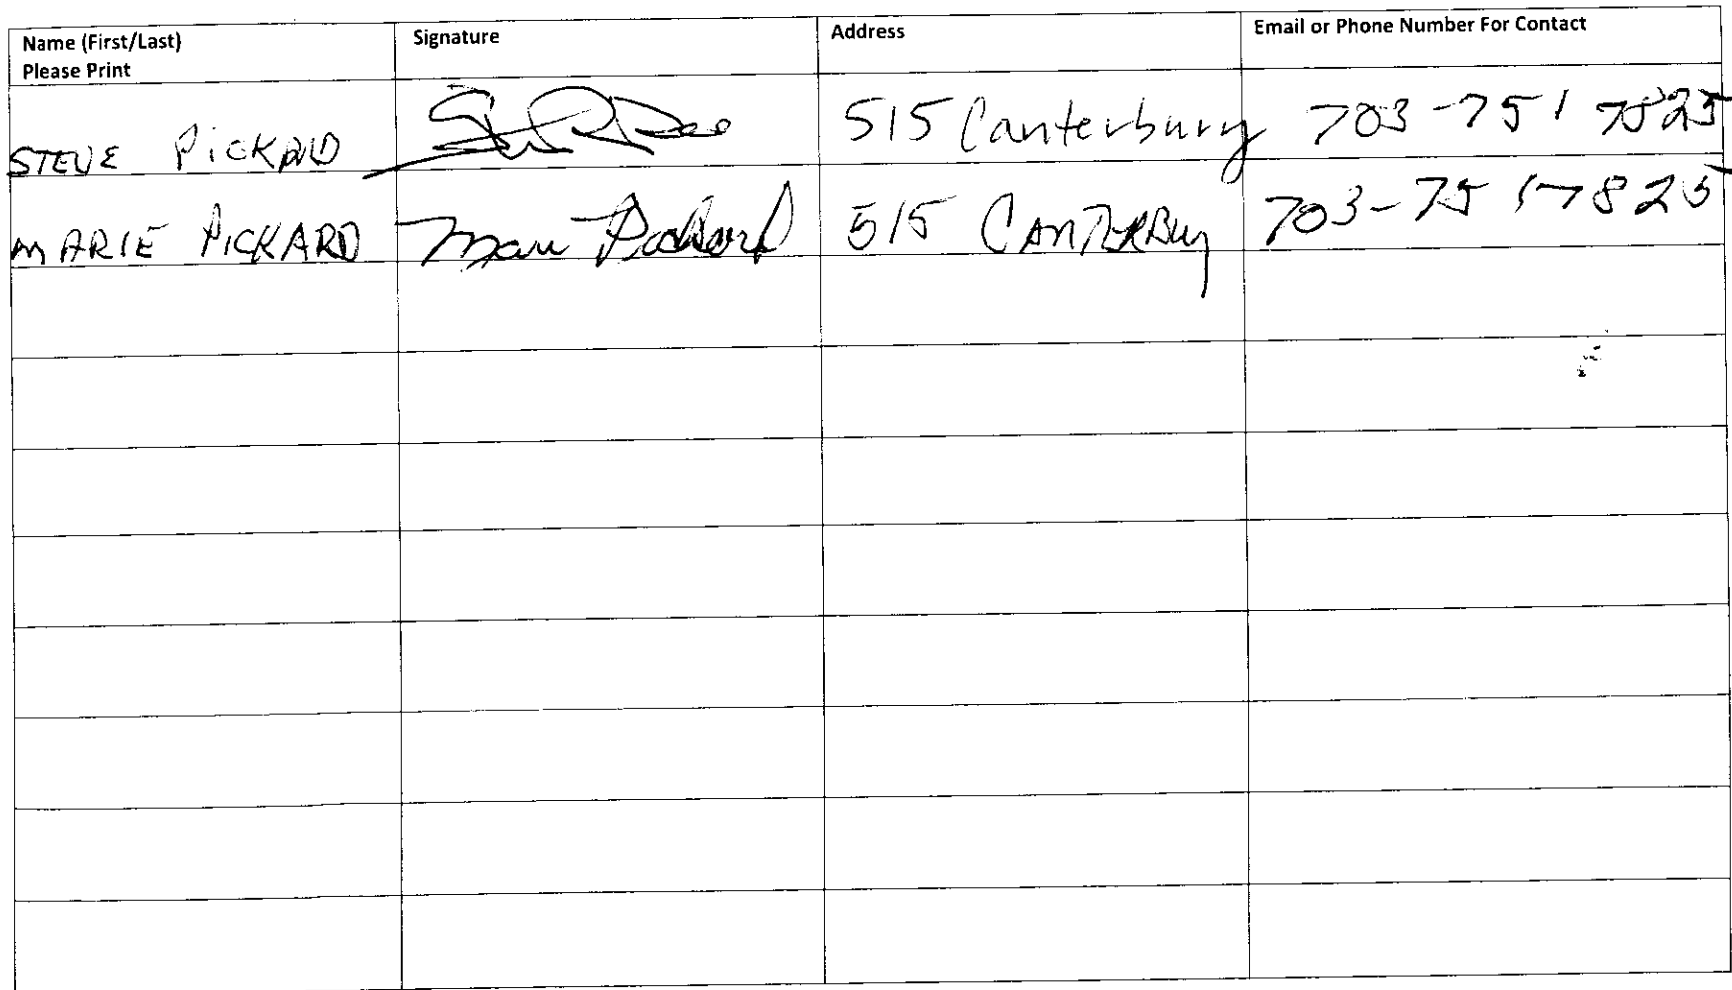 Name (First/Last) Signature Address Email or Phone Number For Contact
Please Print
STEVE PICKARD 515 Canterbury 703-751 7825
MARIE PICKARD Marie Pickard 515 CANTERBURY 703-751-7825